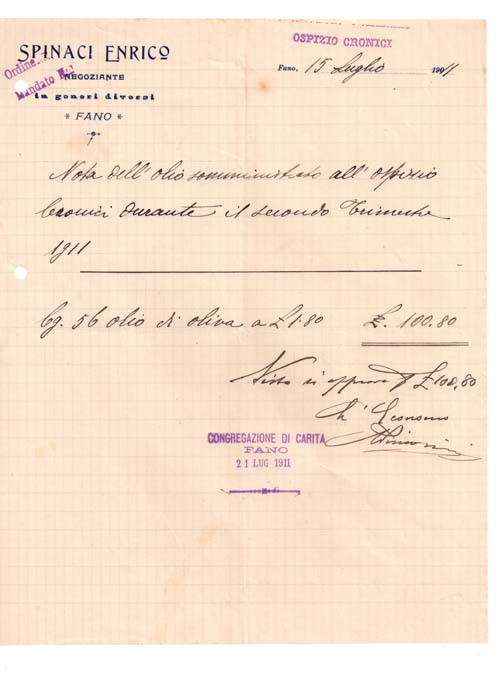 OSPIZIO CRONICI
SPINACI ENRICO
Ordine
Mandato N.
NEGOZIANTE
in generi diversi
* FANO *
Fano, 15 Luglio 1911
Nota dell'olio somministrato all'ospizio
Cronici durante il secondo Trimestre
1911
Cg. 56 olio di oliva a £ 1.80 £. 100.80
Visto si approva £ 100,80
L'Economo
CONGREGAZIONE DI CARITA
FANO
21 LUG 1911